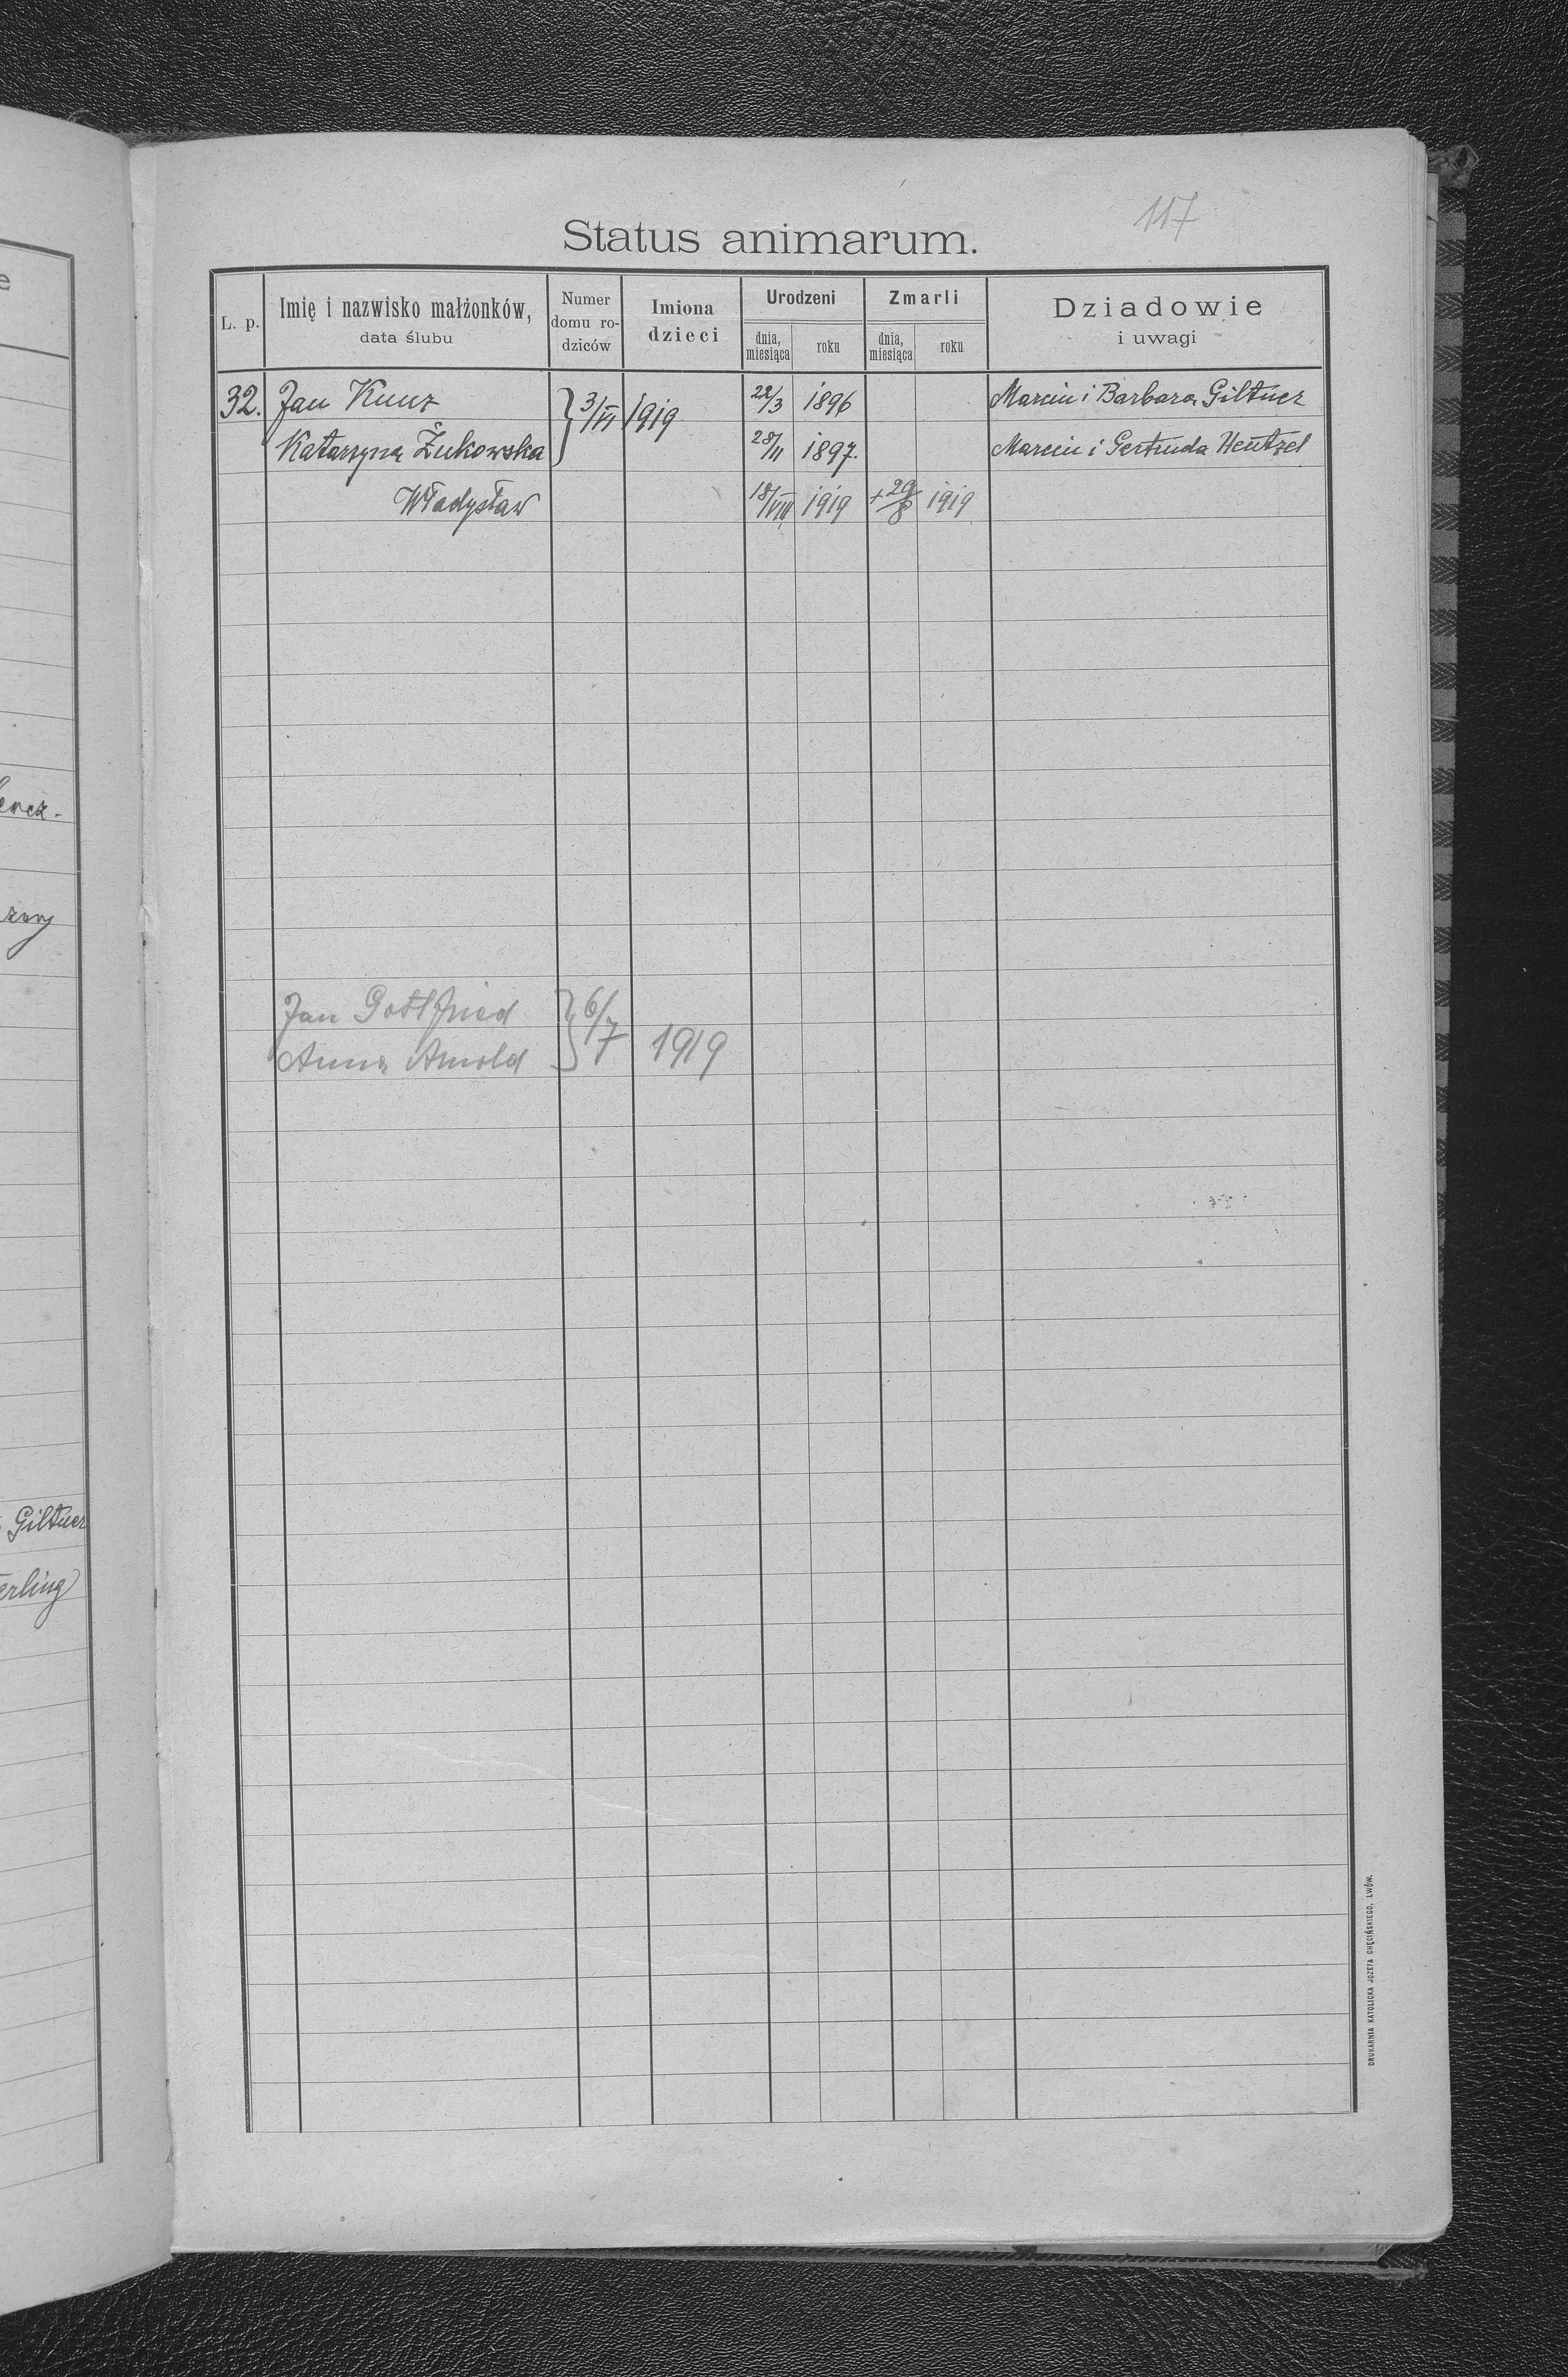 e
encz-
rzny
Giltner
erling
117
Status animarum.
L. p.
Imię i nazwisko małżonków,
data ślubu
Numer
domu ro-
dziców
Imiona
dzieci
Urodzeni
dnia,
miesiąca
roku
Zmarli
dnia,
miesiąca
roku
Dziadowie
i uwagi
32. Jan Kunz } 3/VI 1919 22/3 1896 Marcin i Barbara Giltner
Katarzyna Żukowska 28/11 1897. Marcin i Gertruda Hentzel
Władysław 18/VIII 1919 + 29/8 1919
Jan Gottfried } 6/7 1919
Anna Arnold
DRUKARNIA KATOLICKA JÓZEFA CHĘCIŃSKIEGO, LWÓW.